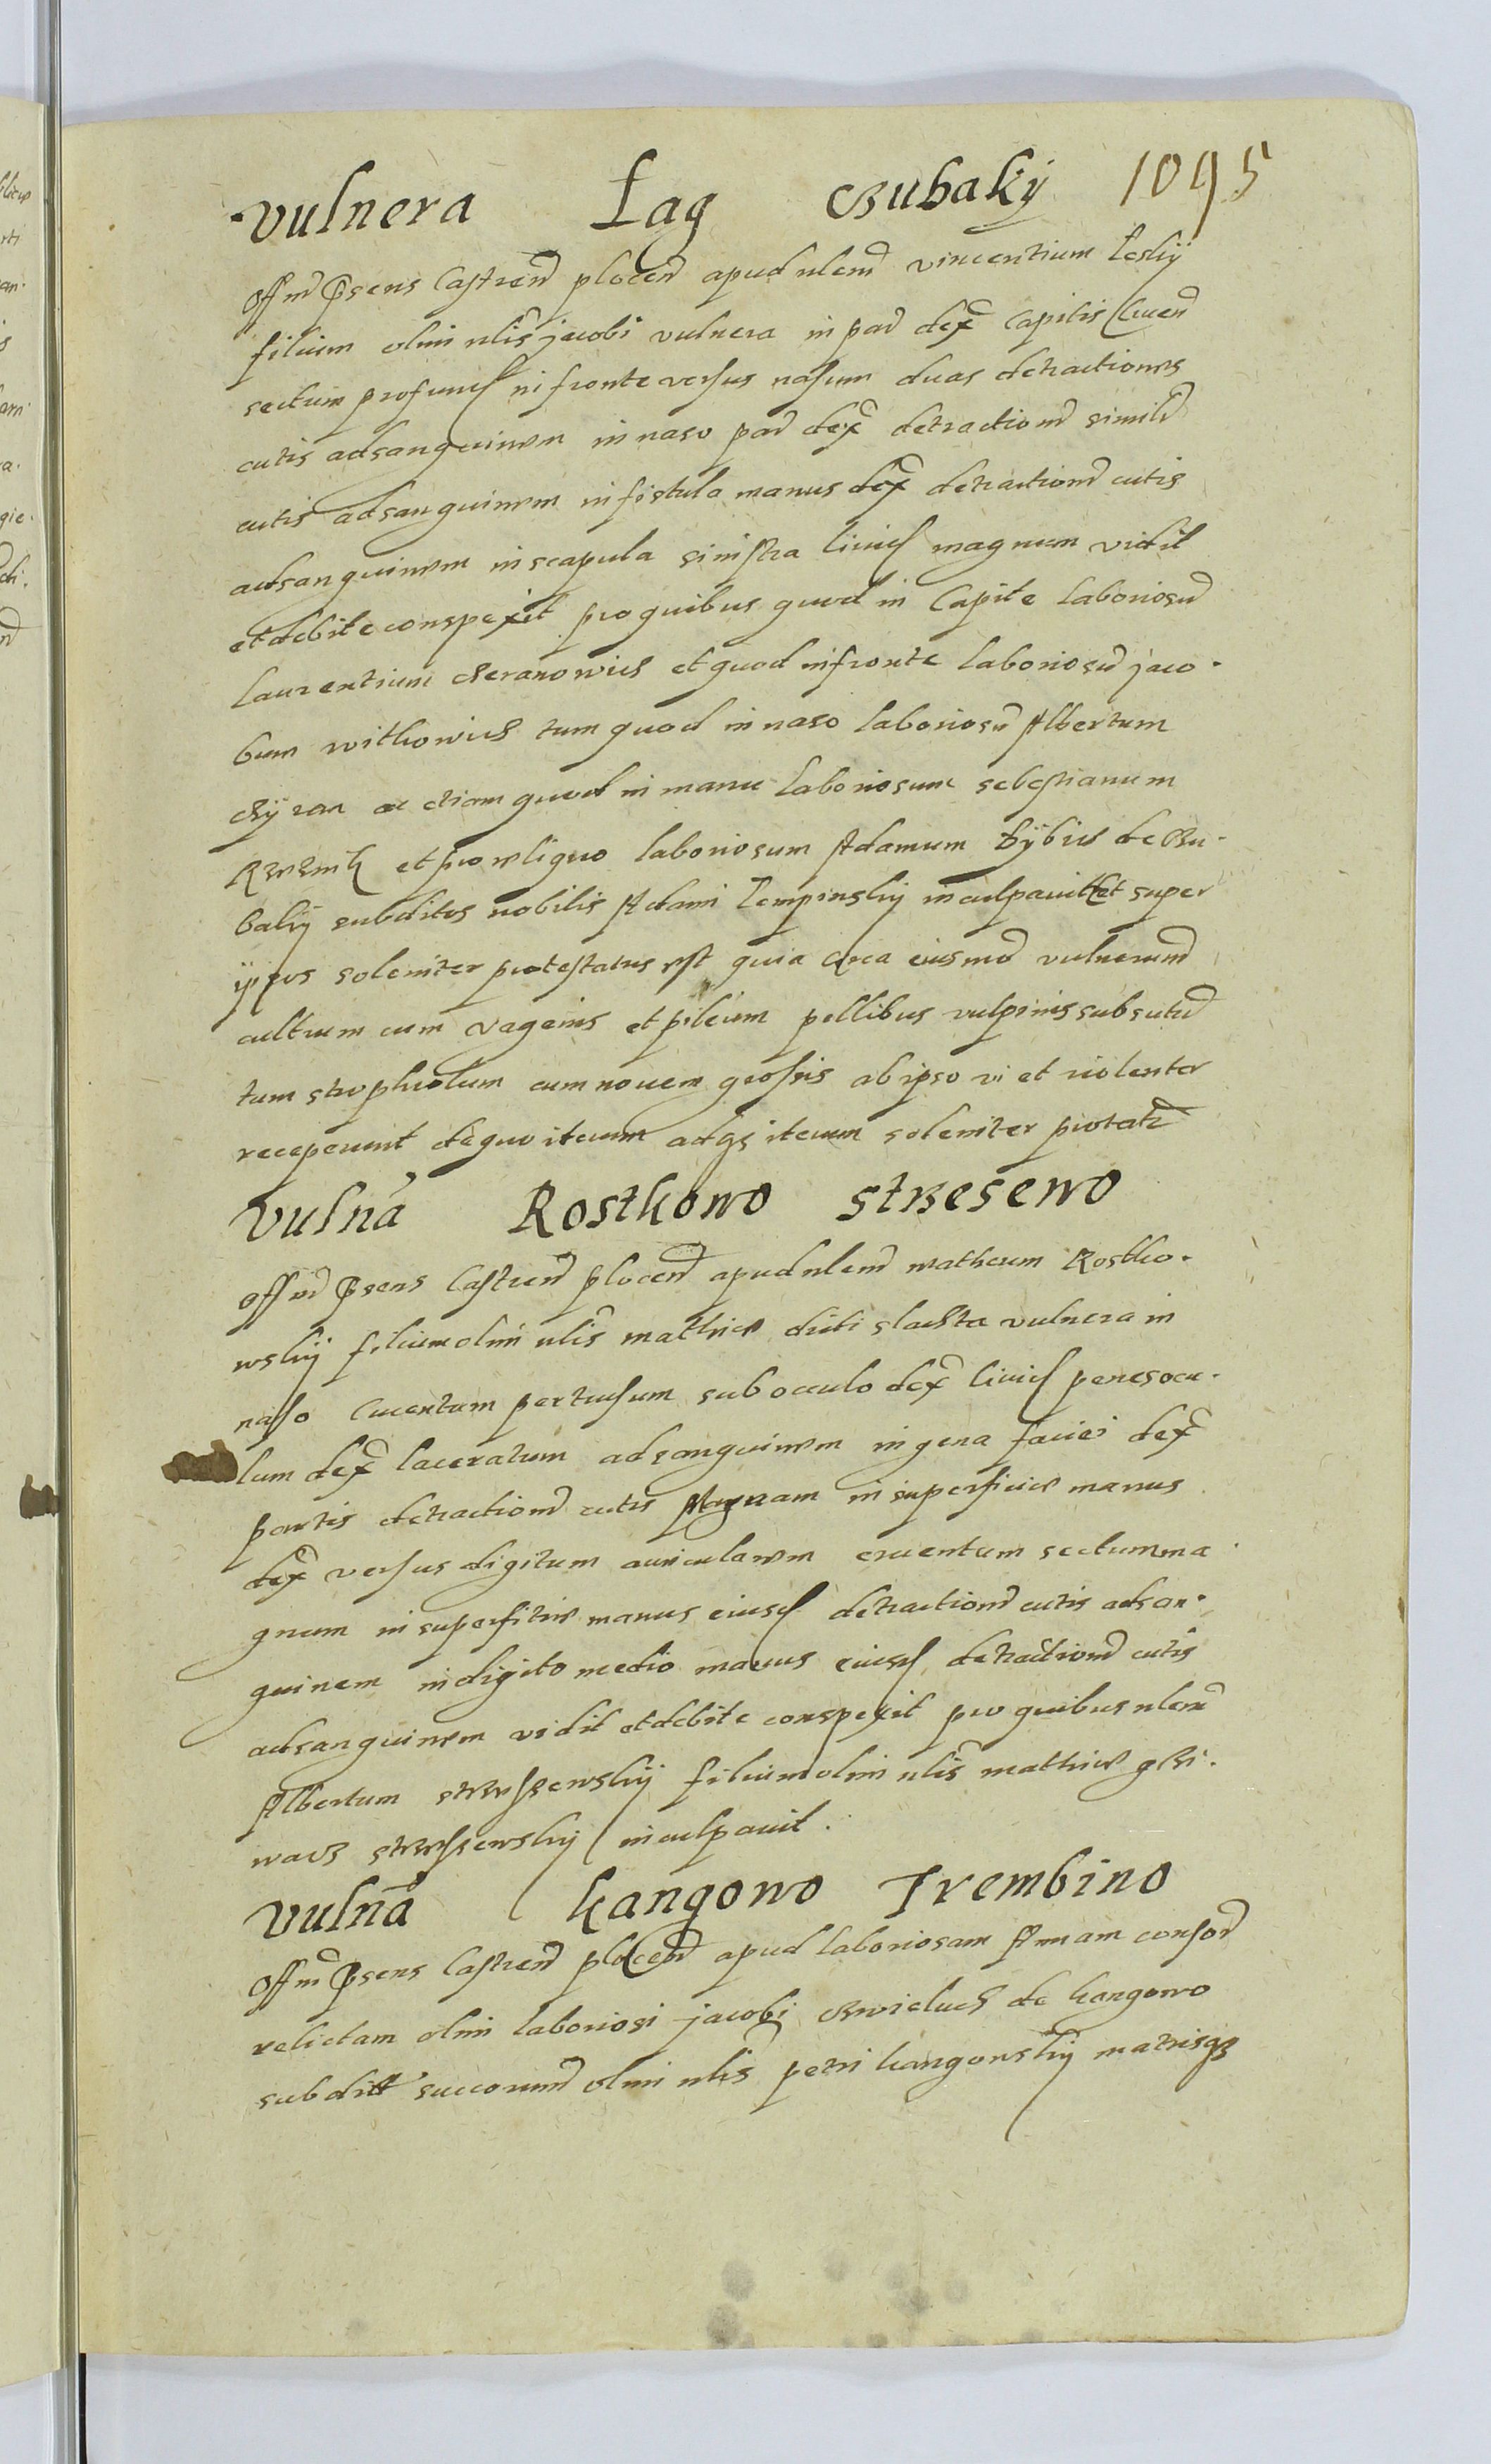 Vulnera Łag Czubaky 1095
Offm Psens Castren plocen apud nlem vincentium Leskÿ
filium olim nlis jacobi vulnera in par dex Capitis Cruen
sectum profund in fronte versus nasum duas detractiones
cutis adsanguinem in naso par dex detractionem simile
cutis adsanguinem in fistula manus dex detractionem cutis
adsanguinem in scapula sinistra livid magnum vidit
et debite conspexit pro quibus quod in Capite laboriosum
laurentium et quod in fronte laboriosum jaco.
bum withowicz tum quod in naso laboriosum Albertum
ac etiam quod in manu laboriosum sebestianum
et pro reliquo laboriosum Adamum de Czu.
bakÿ subditos nobilis Adami Lempinskÿ inculpavit et super
ÿpsos soleniter protestatus est quia circa eiusmod vulnerum
cultrum cum vaginis et pileum pellibus vulpinis subsutum
tum strophiolum cum novem grossis ab ipso vi et violenter
receperunt de quo iterum adqz iterum soleniter protatr
Vulna Rostkowo strzesewo
Offm Psens Castren plocen apud nlem matheum Rostko.
wskÿ filium olim nlis mathie dicti slachta vulnera in
naso Cruentum pertusum sub oculo dex livid penes ocu.
lum dex laceratum adsanguinem in gena faciei dex
partis detractionem cutis Magnam in superficie manus
dex versus digitum auricularem cruentum sectum ma.
gnum in superfitie manus eiusd detractionem cutis adsan.
guinem in digito medio manus eiusd detractionem cutis
adsanguinem vidit et debite conspexit pro quibus nlem
Albertum strzeszewskÿ filium olim nlis mathie grzi.
wacz strzeszewskÿ inculpavit.
Vulna kangowo Trembino
Offm Psens Castren plocen apud laboriosam Annam consor
relictam olim laboriosi jacobi de kangowo
subditt succorum olim nlis petri kangowskÿ matrisqz